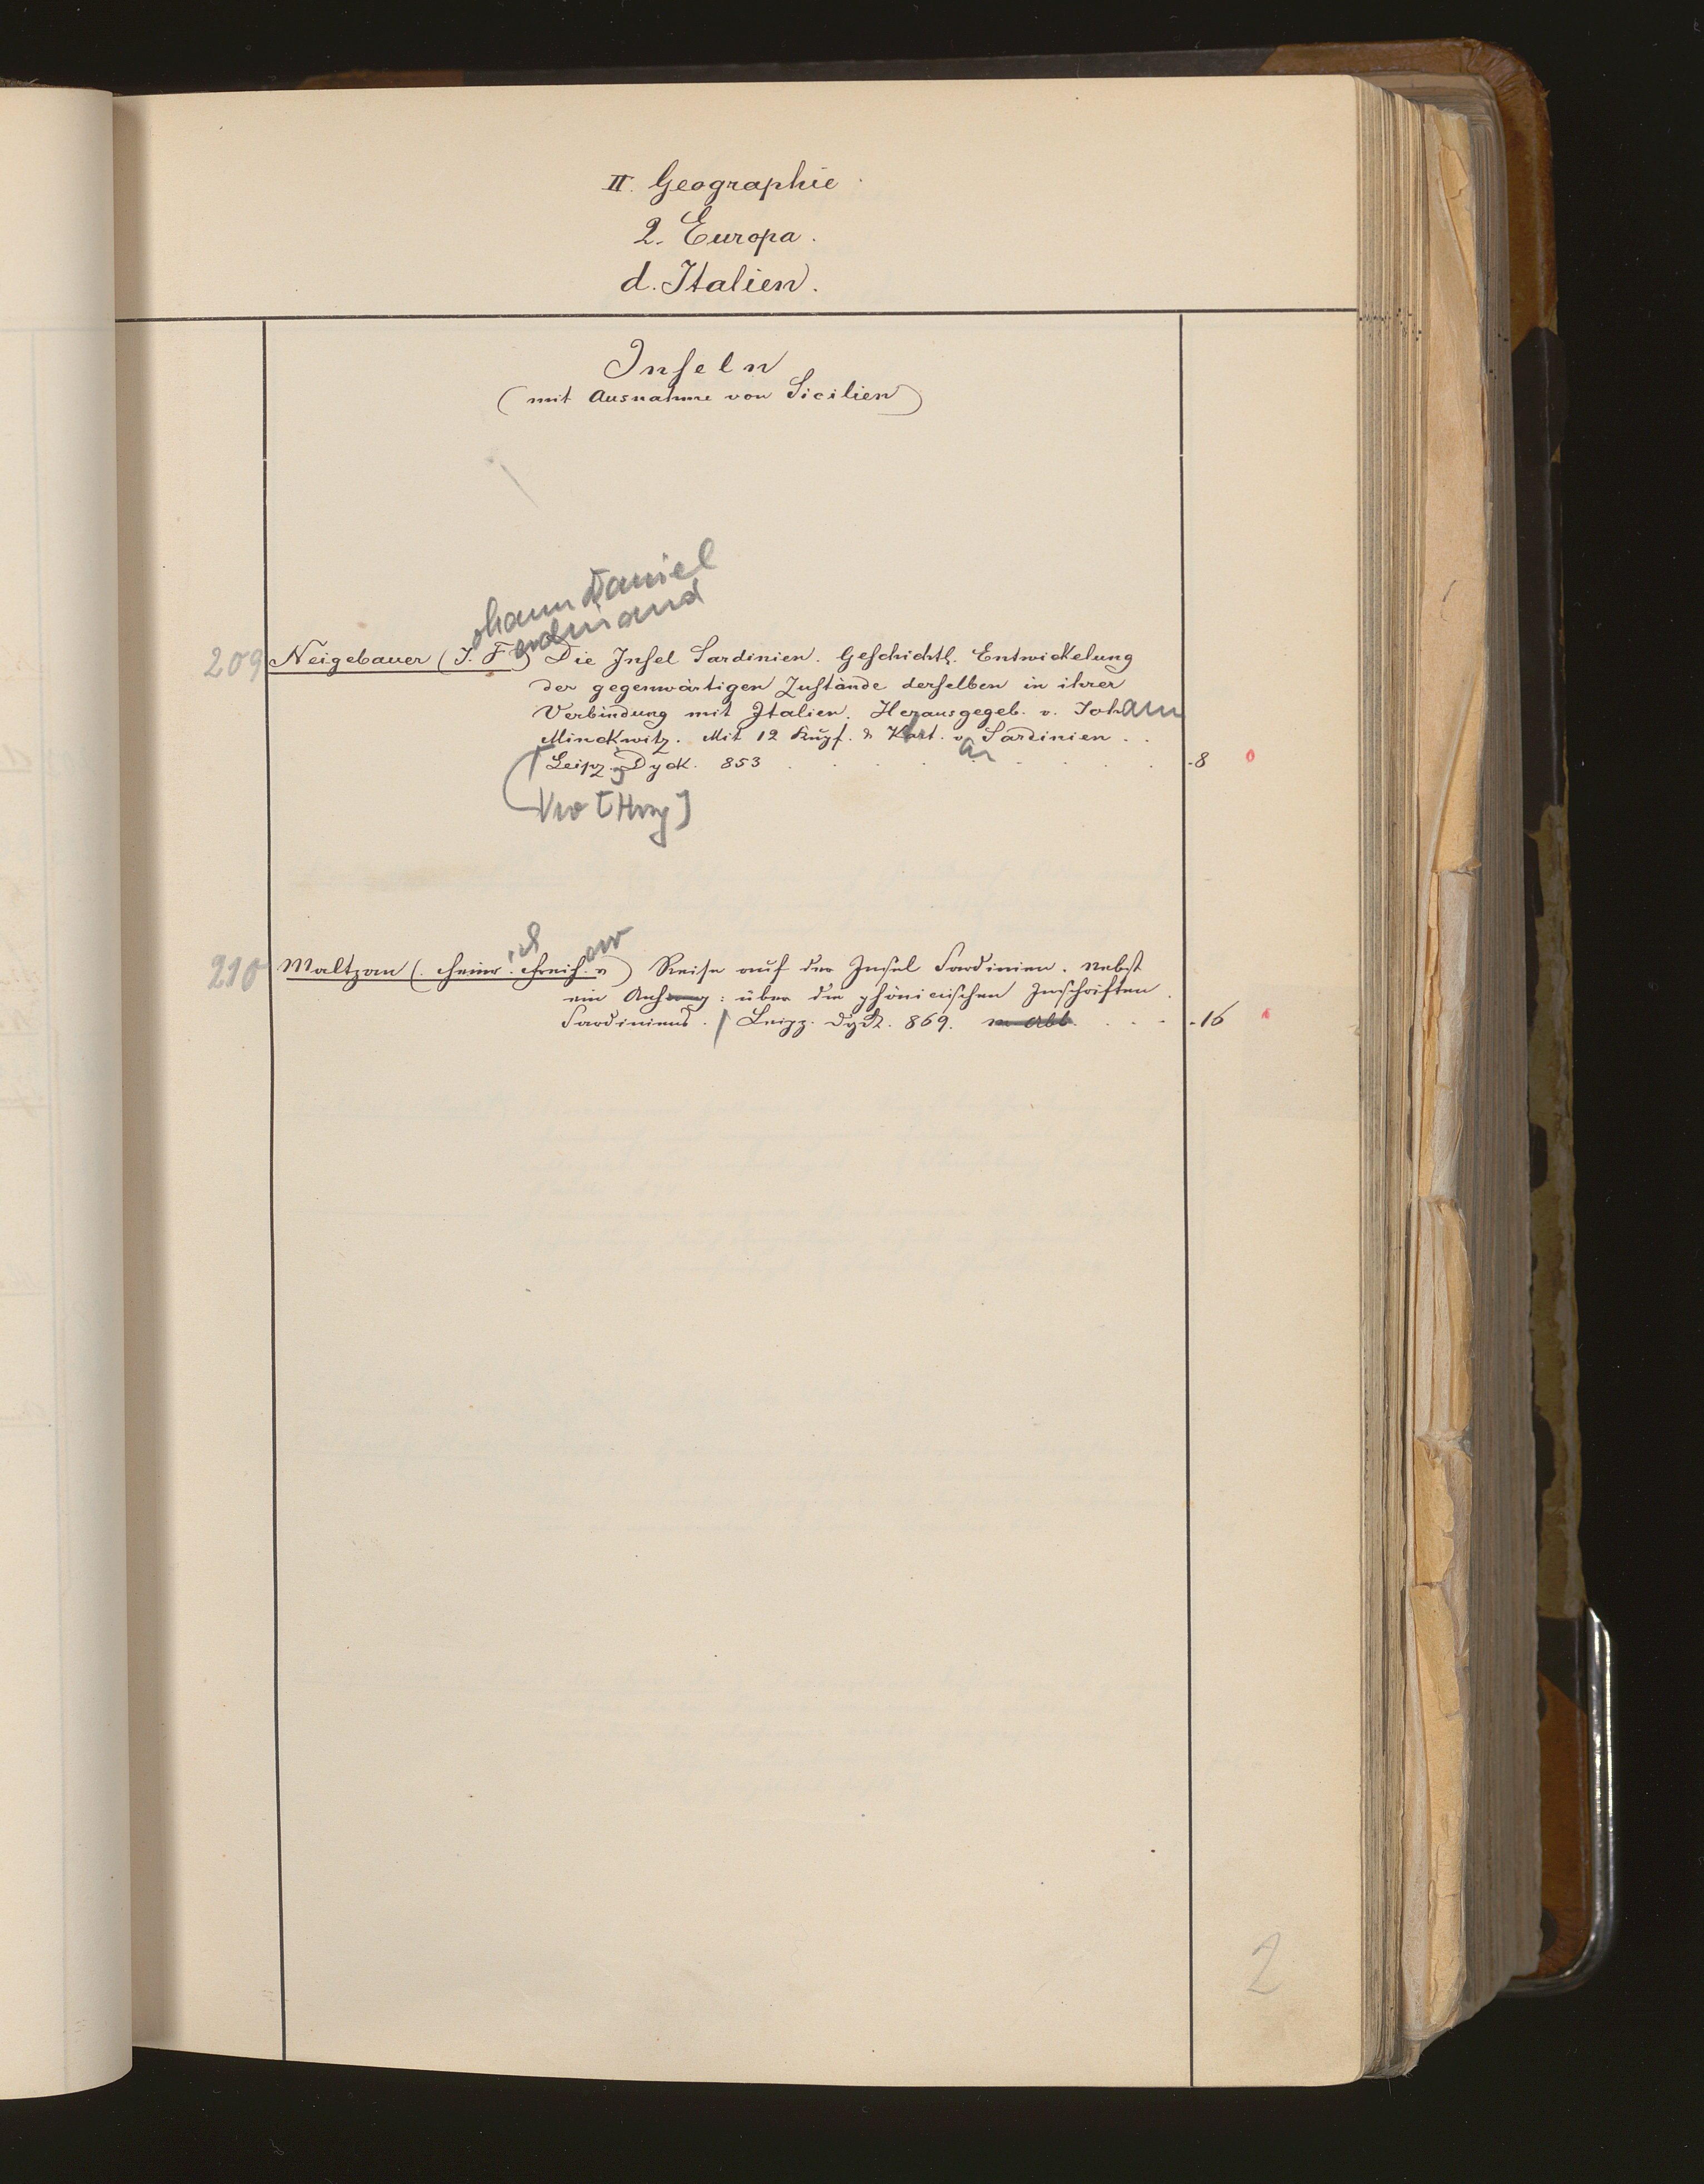 II. Geographie.
2. Europa.
d. Italien.
Inseln
(mit Ausnahme von Sicilien)
ohann Daniel
erdinand
209 Neigebauer (J. F.) Die Insel Sardinien. Geschichtl. Entwickelung
der gegenwärtigen Zustände derselben in ihrer
Verbindung mit Italien. Herausgegeb. v. Johann
Minckwitz. Mit 12 Kupf. & Kart. v. Sardinien . .
Leipz. Dyck. 853 . . . . . . . . -8
[Hrsg]
ich on
210 Maltzan (Heinr. Freih. v) Reise auf der Insel Sardinien. Nebst
ein Anhang: über die phönicischen Inschriften
Sardiniens. / Leipz. Dyk. 869. m Abb. . . . -16
2